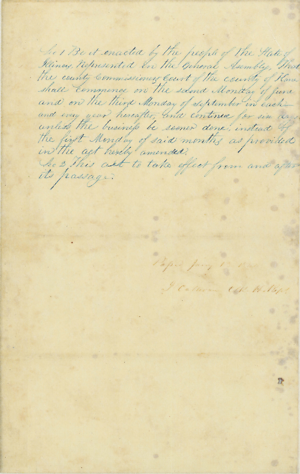 Sec 1 Be it enacted by the people of the State of
Illinois, Represented in the General Assembly, That
the county Commissioners Court of the county of
shall Commence on the second Monday of June
and on the third Monday of september in each
and every year hereafter, and continue for six days
unless the business be sooner done, instead of
the first Monday of said months, as provided
in the act hereby amended.
Sec 2 This act to take effect from and after
its passage.